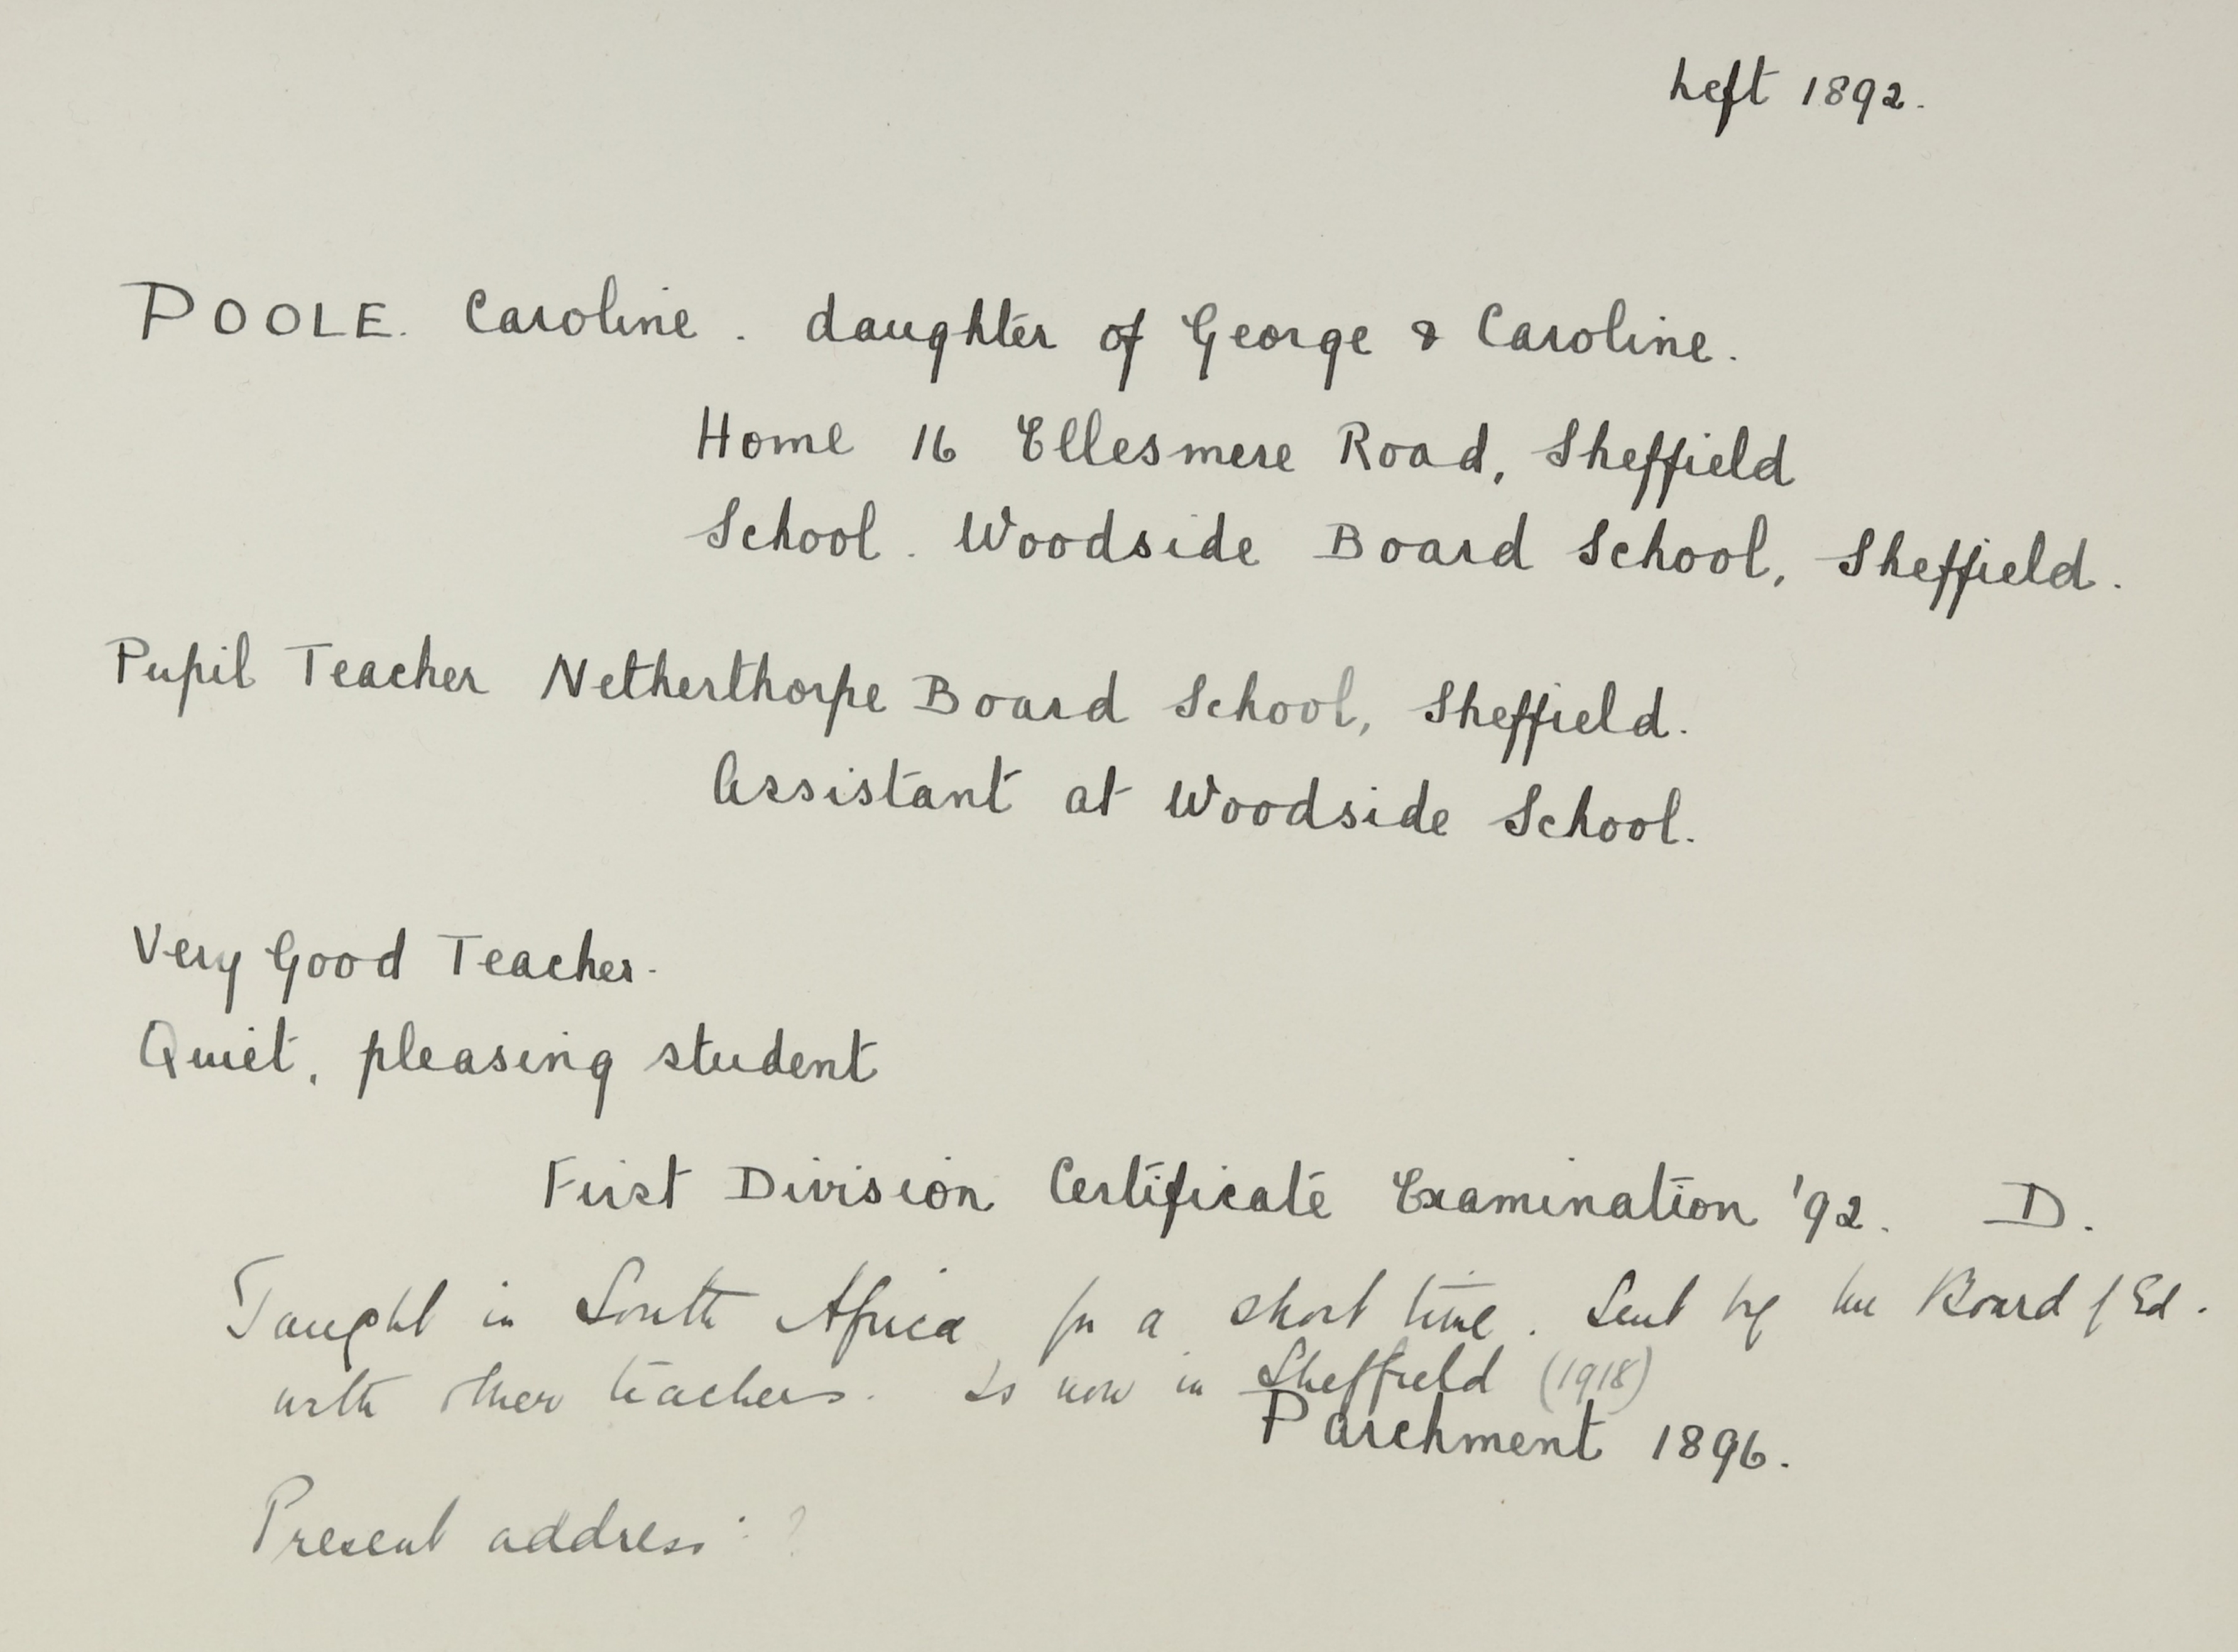 Left 1892.
POOLE. Caroline. daughter of George & Caroline.
Home 16 Ellesmere Road, Sheffield
School. Woodside Board School, Sheffield.
Pupil Teacher Netherthorpe Board School, Sheffield.
Assistant at Woodside School.
Very Good Teacher.
Quiet, pleasing student
First Division Certificate Examination '92. D.
Taught in South Africa for a short time. Sent by the Board of Ed.
with other teachers. Is now in Sheffield (1918)
Parchment 1896.
Present address: ?